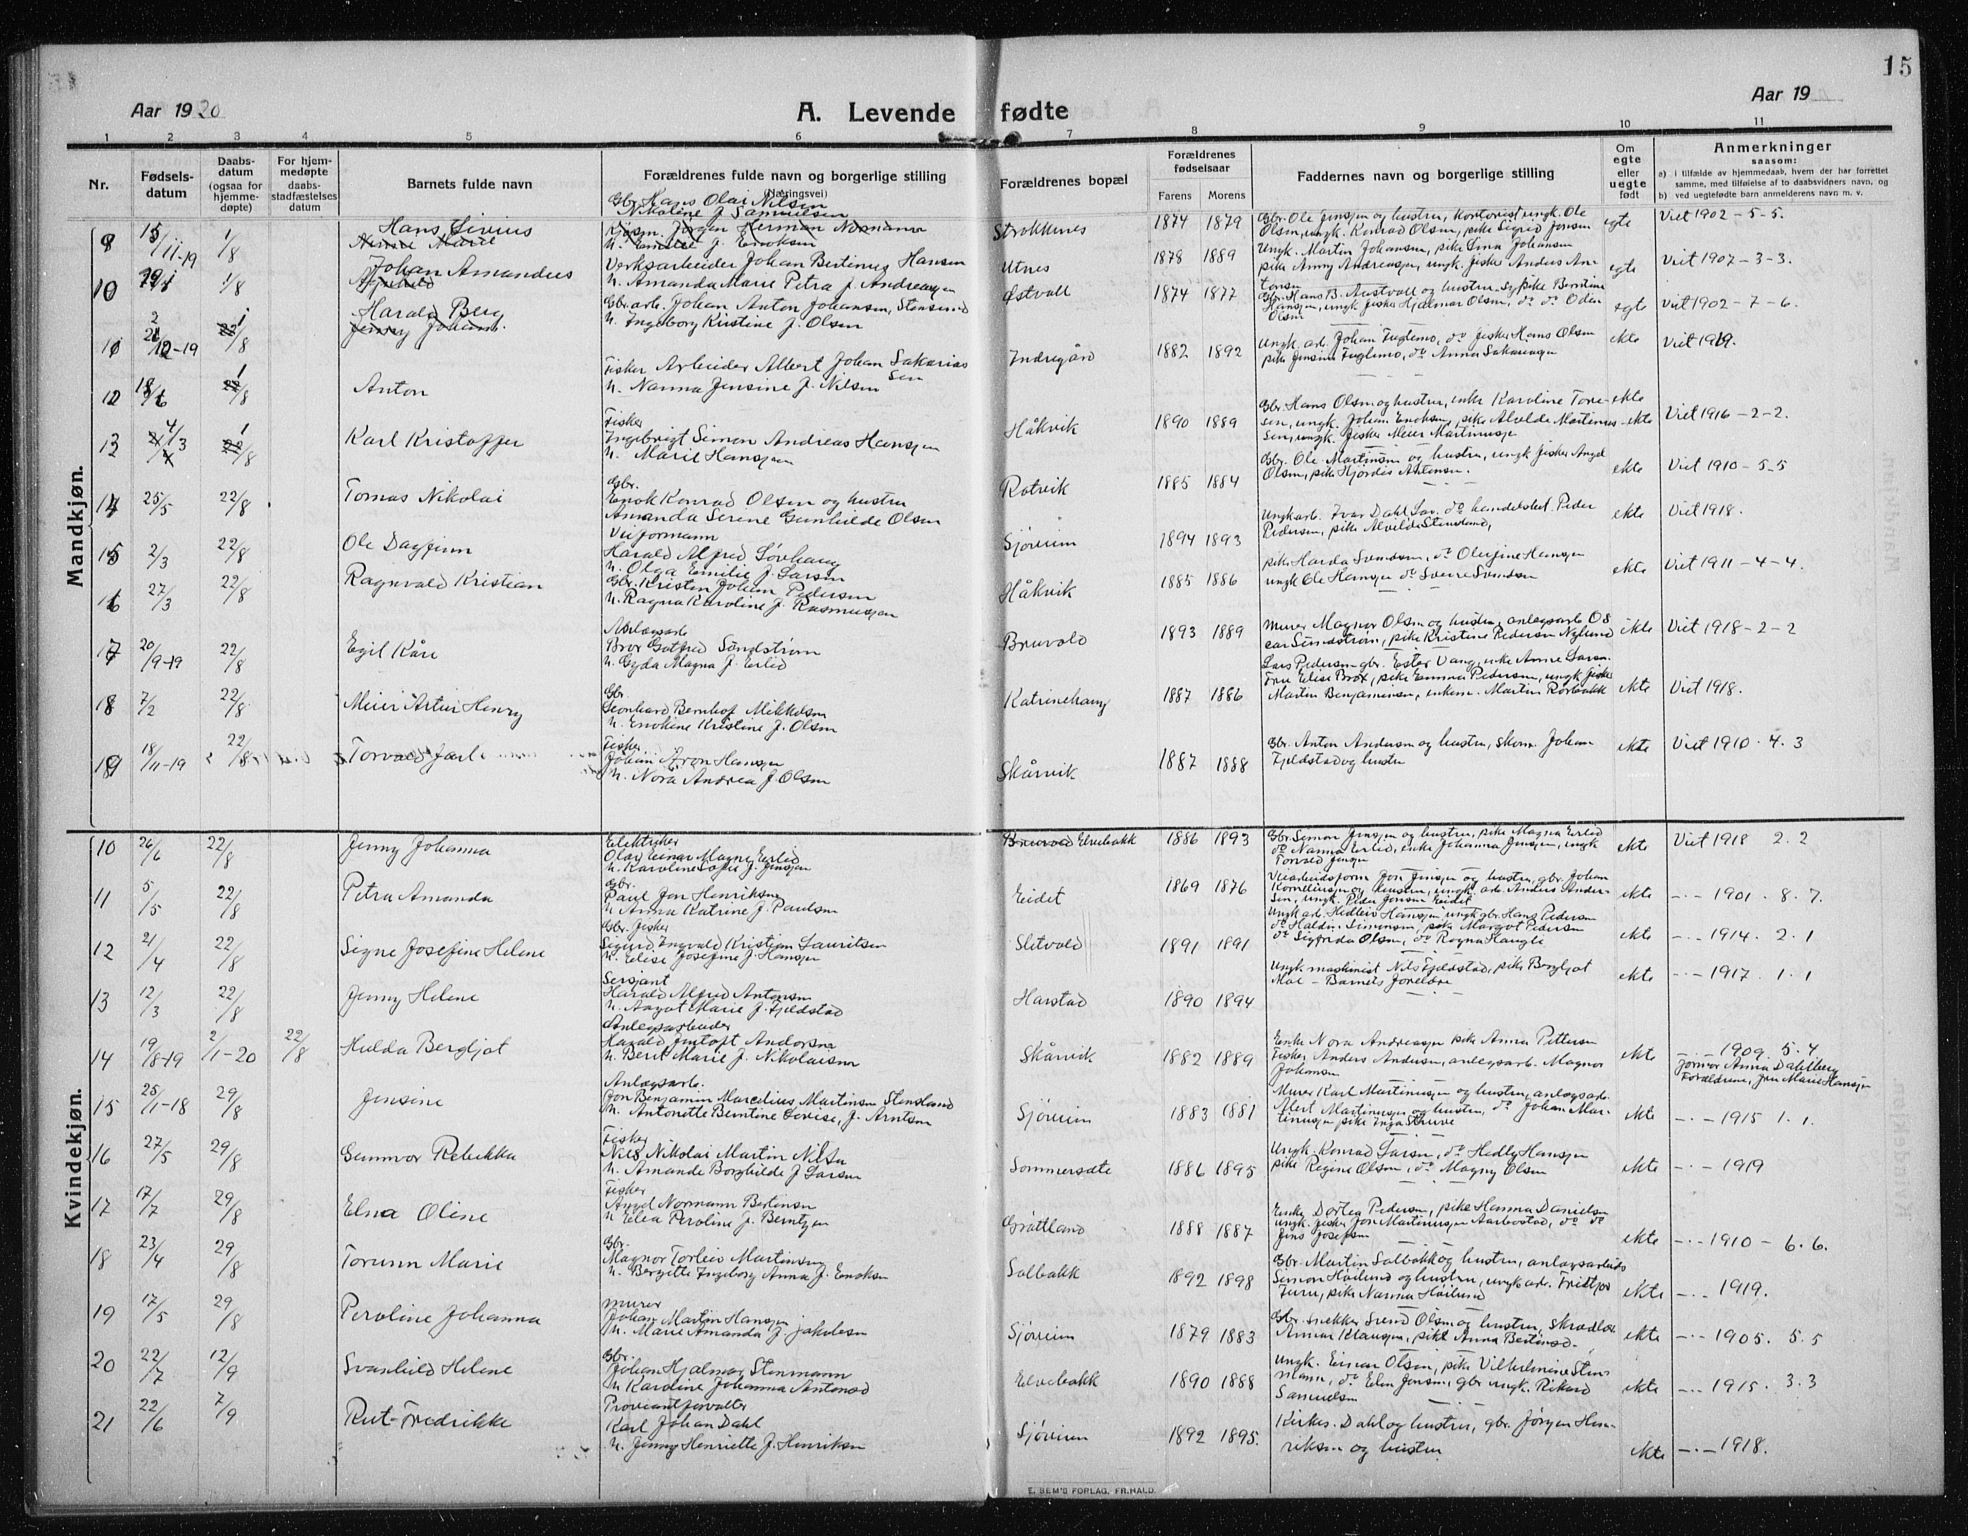 15
Aar 1920
A. Levende fødte
Aar 19
1 2 3 4 5 6 7 8 9 10 11
Nr.
Fødsels-
datum
Daabs-
datum
(ogsaa for
hjemme-
døpte)
For hjem-
medøpte
daabs-
stadfæstelses
datum
Barnets fulde navn
Forældrenes fulde navn og borgerlige stilling
(Næringsvei)
Forældrenes bopæl
Forældrenes
fødselsaar
Farens Morens
Faddernes navn og borgerlige stilling
Om
egte
eller
uegte
født
Anmerkninger
saasom:
a) i tilfælde av hjemmedaab, hvem der har forrettet
samme, med tilføielse af to daabsvidners navn, og
b) ved uegtefødte barn anmelderens navn m. v.
Mandkjøn.
Gbr. Hans Olai Nilsen
Nikoline J. Samuelsen
9 15/11-19 1/8 Hans Sivius
Strokkenes 1874 1879 Gbr. Ole Jensen og hustru, Kontorist ungk. Ole
Olsen, ungk. Konrad Olsen, pike Sigrid Jensen egte Viet 1902-5-5.
10 1/8 Johan Amandus
Verksarbeider Johan Bertinus Hansen
h. Amanda Marie Petra J. Andreassen
Utnes 1878 1889 Ungk. Martin Johansen, pike Lina Johansen
pike Anny Andreassen, ungk. fisker Anders An-
tonsen egte Viet 1907-3-3.
Harald Berg
Gbr. arb. Johan Anton Johansen, Stensland
h. Ingeborg Kristine J. Olsen
Østvoll 1874 1877 Gbr. Hans B. Austvoll og hustru, pike Berntine
Hansen, ungk. fisker Hjalmar Olsen, do do Odin
Olsen egte Viet 1902-7-6.
11 /12-19 /8
Fisker Arbeider Albert Johan Sakarias
sen
h. Nanna Jensine J. Nilsen
Indregård 1882 1892 Ungk. arb. Johan Fuglemo, do fisker Hans Olsen
pike Jensine Fuglemo, do Anna Sakariassen ekte Viet 1919.
12 /8 Anton
Fisker
Ingebrigt Simon Andreas Hansen
h. Marie Hansen
Håkvik 1890 1889 Gbr. Hans Olsen og hustru, enke Karoline Tore-
sen, ungk. Johan Enoksen, pike Alvilde Martinus-
sen, ungk. fisker Meier Martinussen ekte Viet 1916-2-2.
13 /8 Karl Kristoffer
Gbr.
Enok Konrad Olsen og hustru
Amanda Serene Gunhilde Olsen
Rotvik 1885 1884 Gbr. Ole Martinsen og hustru, ungk fisker Angel
Olsen, pike Hjørdis Antonsen. ekte Viet 1910-5-5
14 25/5 22/8 Tomas Nikolai
Veiformann
Harald Alfred Løvhaug
h. Olga Emilie J. Larsen
Sjøveien 1894 1893 Ungk arb. Ivar Dahl Lav. do handelsbet. Peder
Pedersen, pike Alvilde Stensland, ekte Viet 1918.
15 2/3 22/8 Ole Dagfinn
Gbr. Kristen Johan Pedersen
h. Ragna Karoline J. Rasmussen
Håkvik 1885 1886 pike Harda Svendsen, do Olufine Hansen
ungk Ole Hansen do Sverre Svendsen ekte Viet 1911-4-4.
16 27/3 22/8 Ragnvald Kristian
Anlægsarb
Bror Gotfred Sundstrøm
h. Gyda Magna J. Erlid
Bruvold 1893 1889 Murer Magnor Olsen og hustru, anlegsarb Os
car Sundstrøm, pike Kristine Pedersen Nylund ekte Viet 1918-2-2
17 20/9-19 22/8 Egil Kåre
Gbr
Leonhard Bernhof Mikkelsen
h. Enokine Kristine J. Olsen
Katrinehaug 1887 1886 Lars Pedersen gbr. Ester Vang, enke Anne Larsen
Fru Elise Brox, pike Emma Pedersen, ungk fisker
Martin Benjaminsen, enkem. Martin Rorbakk ekte Viet 1918.
18 7/2 22/8 Meier Artur Henry
Fisker
Johan Aron Hansen
h. Nora Andrea J. Olsen
Skårvik 1887 1888 Gbr. Anton Andersen og hustru, skom. Johan
Fjeldstad og hustru ekte Viet 1910.4.3
19 18/11-19 22/8 Torvald Jarl
Kvindekjøn.
10 26/6 22/8 Jenny Johanna
Elektriker
Olav Einar Magne Erlid
h. Karoline Sofie J. Jensen
Bruvold Elvebakk 1886 1893 Gbr. Simon Jensen og hustru, pike Magna Erlid
do Nanna Erlid, enke Johanna Jensen, ungk
Torvald Jensen ekte Viet 1918 2.2
11 5/5 22/8 Petra Amanda
Gbr.
Paul Jon Henriksen
h. Anna Katrine J. Paulsen
Eidet 1869 1876 Veiarbeidsform Jon Jensen og hustru, gbr. Johan
Korneliussen og hustru, ungk. arb. Anders Ander-
sen, ungk. Peder Jonsen Eidet ekte -.- 1901. 8.7.
12 21/4 22/8 Signe Josefine Helene
Gbr. fisker
Sigurd Ingvald Kristian Lauritsen
h. Elise Josefine J. Hansen
Slitvold 1891 1891 Ungk arb. Hedleiv Hansen ungk gbr. Hans Pedersen
do Haldin Simonsen, pike Margot Pedersen
do Sigfrida Olsen, do Ragna Haugli ekte -.- 1914. 2.1
13 12/3 22/8 Jenny Helene
Sersjant
Harald Alfred Antonsen
h. Aagot Marie J. Fjeldstad
Harstad 1890 1894 Ungk maskinist Nils Fjeldstad, pike Bergljot
Moe - Barnets foreldre ekte -.- 1917. 1.1
14 19/8-19 2/1-20 22/8 Hulda Bergljot
Anlegsarbeider
Harald Justoft Andorsen
h. Berit Marie J. Nikolaisen
Skårvik 1882 1889 Enke Nora Andreassen pike Anna Pettersen
Fisker Anders Andersen, anlegsarb. Magnor
Johansen ekte -.- 1909. 5.4
Jormor Anna Dahlberg
Forældrene, Jon Marie Hansen
15 25/1-18 29/8 Jensine
Anlægsarb.
Jon Benjamin Marcelius Martinsen Stensland
h. Antonette Berntine Lovise, J. Arntsen
Sjøveien 1883 1881 Murer Karl Martinussen og hustru, anlegsarb.
Albert Martinussen og hustru, do Johan Mar-
tinussen pike Inga Struve ekte -.- 1915 1.1.
16 27/5 29/8 Gunnvor Rebekka
Fisker
Nils Nikolai Martin Nilsen
h. Amande Borghilde J. Larsen
Sommersæte 1886 1895 Ungk. Konrad Larsen, do Hedly Hansen
pike Regine Olsen, do Magny Olsen ekte -.- 1919
17 17/7 29/8 Elna Oline
Fisker
Angel Normann Bertensen
h. Elea Peroline J. Berntsen
Grøttland 1888 1887 Enke Dortea Pedersen, pike Hanna Danielsen
ungk. fisker Jon Martinussen Aarbostad, do do
Jens Josefsen ekte -.- 1910 - 6.6.
18 23/4 29/8 Torunn Marie
Gbr.
Magnor Torleiv Martinsen
h. Bergitte Ingeborg Anna J. Enoksen
Solbakk 1892 1898 Gbr. Martin Solbakk og hustru, anlegsarbeids
Simon Høilund og hustru, ungk arb. Fridtjof
Furu, pike Nanna Høilund ekte -.- 1919.
19 17/5 29/8 Peroline Johanna
Murer
Johan Martin Hansen
h. Marie Amanda J. Jakobsen
Sjøveien 1879 1883 Gbr. snekker Svend Olsen og hustru, skrædder
Annar Klausen, pike Anna Bertinsd. ekte -.- 1905. 5.5
20 22/7 12/9 Svanhild Helene
Gbr.
Johan Hjalmar Stenmann
h Karoline Johanna Antonsd
Elvebakk 1890 1888 Ungk. Einar Olsen, pike Vilhelmine Sten
mann, do Elen Jensen, gbr ungk. Rikard
Samuelsen ekte -.- 1915. 3.3
21 22/6 7/9 Rut Fredrikke
Proviantforvalter
Karl Johan Dahl
h. Jenny Henriette J. Henriksen
Sjøveien 1892 1895. Kirkes. Dahl og hustru, gbr. Jørgen Hen-
riksen og hustru ekte -.- 1918.
E. SEM'S FORLAG, FR.HALD.